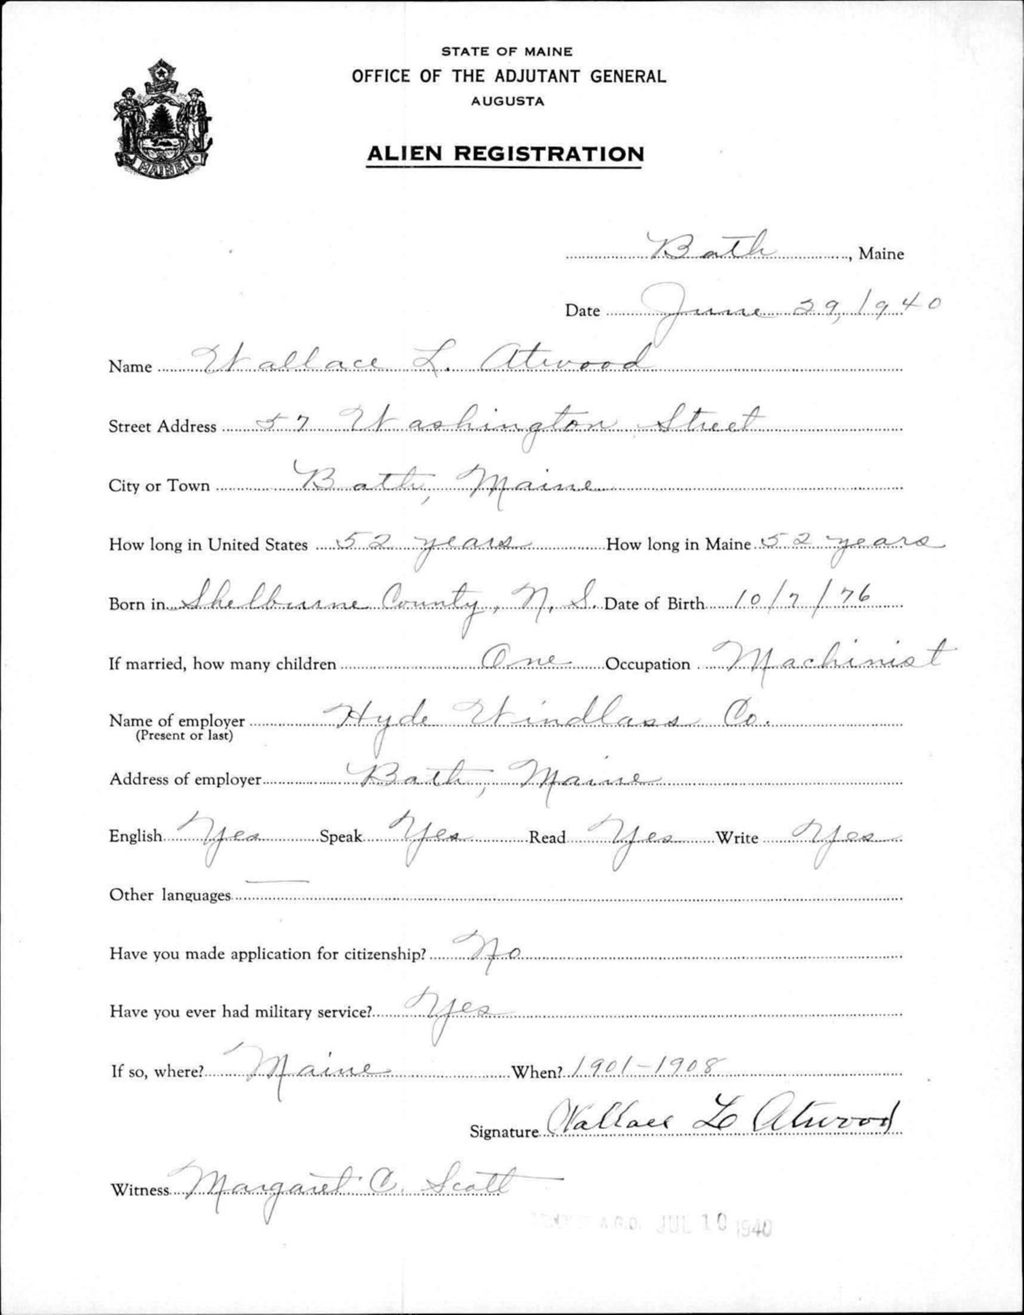 STATE OF MAINE
OFFICE OF THE ADJUTANT GENERAL
AUGUSTA
ALIEN REGISTRATION
MAINE
Bath, Maine
Date June 29, 1940
Name Wallace L. Atwood
Street Address 57 Washington Street
City or Town Bath, Maine
How long in United States 52 years How long in Maine 52 years
Born in Shelburne County, N. S. Date of Birth 10/7/76
If married, how many children One Occupation Machinist
Name of employer Hyde Windlass Co.
(Present or last)
Address of employer Bath, Maine
English Yes Speak Yes Read Yes Write Yes
Other languages —
Have you made application for citizenship? No
Have you ever had military service? Yes
If so, where? Maine When? 1901-1908
Signature Wallace L Atwood
Witness Margaret C. Scott
A.G.O. JUL 10 1940